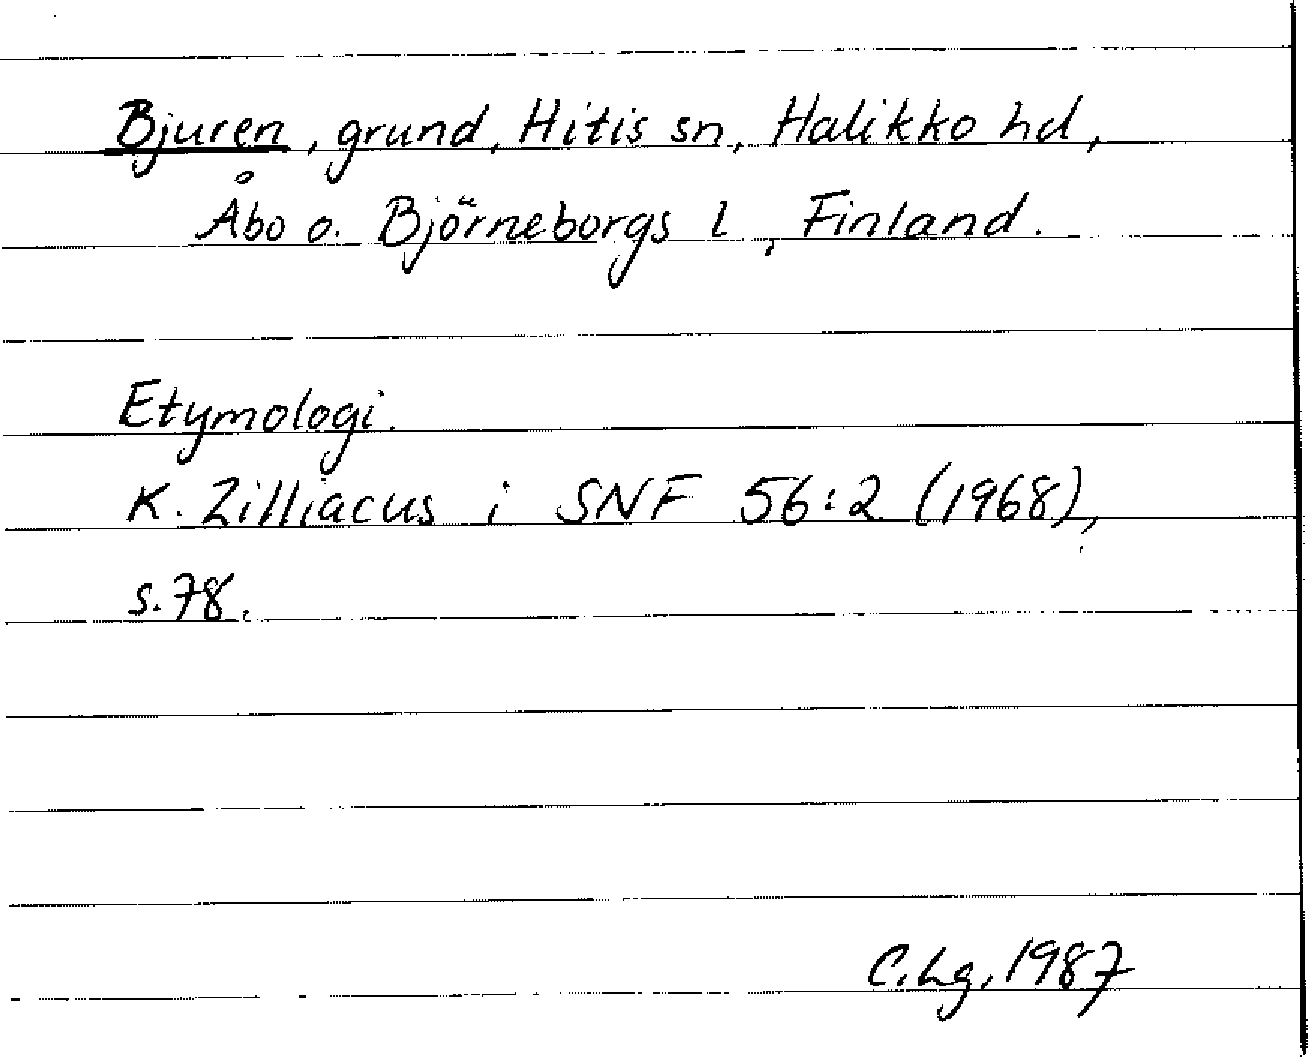 Bjuren, grund, Hitis sn, Halikko hd,
Åbo o. Björneborgs l, Finland.
Etymologi.
K. Zilliacus i SNF 56:2 (1968),
s. 78.
C. Lg, 1987